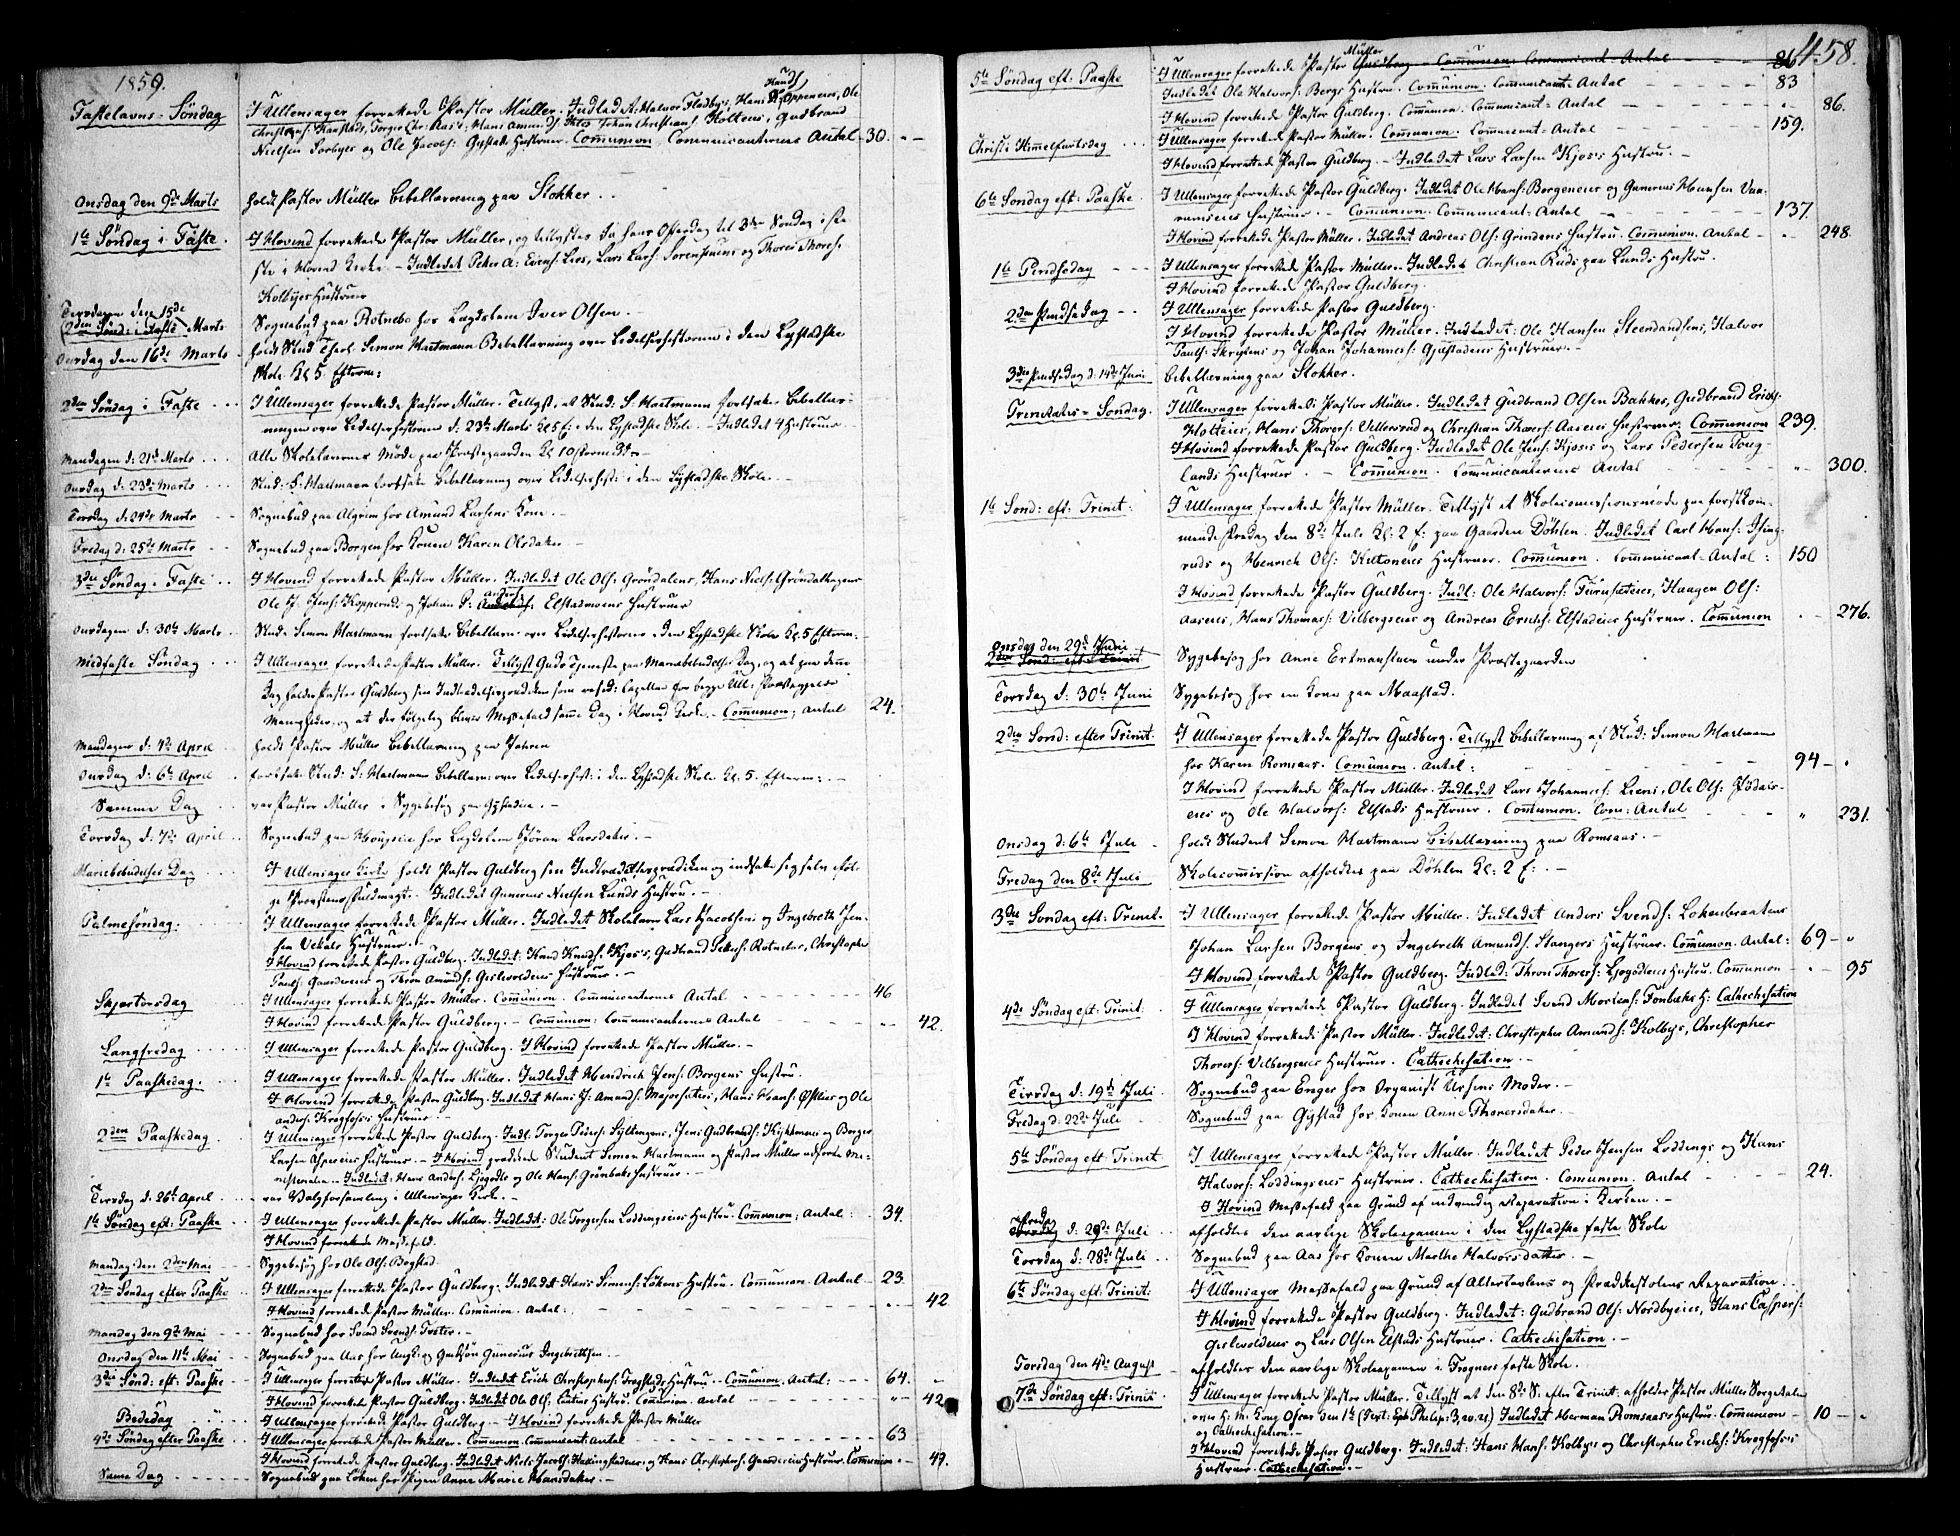 1859.
Fastelavns-Söndag I Ullensager forrettede Pastor Müller. Indled A: Halvor Fladbyes, Hans Knuds: Oppeneies, Ole
Nielsen Sorbyes og Ole Jacobs: Gystads Hustruer. Communion. Communicanternes Antal 30. " –
Onsdag den 9de Marts holdt Pastor Müller Bibellæsning paa Stokker.
1ste Söndag i Faste. I Hovind forrettede Pastor Müller, og tillystes da hans Offerdag til 3die Søndag i Fa
ste i Hovind Kirke. – Indledet Peter A: Evens: Lies, Lars Lars: og Thores Thores:
Kolbyes Hustruer
Tirsdagen den 15de Marts Sognebud paa Rotnebo hos Lægdslem Iver Olsen. –
(2den Sönd: i Faste)
Onsdag den 16de Marts holdt Stud. Theol. Simon Martmann Bibellæsning over Lidelseshistorien i den Gystadske
Skole Kl 5. Efterm:
2den Söndag i Faste I Ullensager forrettede Pastor Müller. Tillyst, at Stud: S. Martmann fortsatte Bibellæs-
ningen over Lidelseshistorien d: 23de Marts Kl 5 E: i den Gystadske Skole. – Indledet 4 Hustruer
Mandagen d: 21de Marts Alle Skolelærernes Møde paa Præstegaarden Kl 10 Formid.
Onsdag d: 23de Marts Stud: S. Martmann fortsatte Bibellæsning over Lidelseshist: i den Gystadske Skole.
Torsdag d: 24de Marts Sognebud paa Algrim hos Amund Larsens Kone. –
Fredag d: 25de Marts Sognebud paa Borgen hos Konen Karen Olsdatter –
3die Söndag i Faste I Hovind forrettede Pastor Müller. Indledet Ole Ols: Gröndalens, Hans Niels: Gröndalhagens
Ole J. Jens: Kopperuds og Johan P: Anders: Elstadmoens Hustruer
Onsdagen d: 30te Marts Stud. Simon Martmann fortsatte Bibellæsn: over Lidelseshistorien i den Gystadske Skole Kl. 5 Efterm:
Midfaste Söndag I Ullensager forrettede Pastor Müller. Tillyst Guds Tjeneste paa Mariæbebudelses Dag, og at paa denne
Dag holder Pastor Guldberg sin Indtrædelsesprædiken som resid: Capellan for begge Ull: Præstegjelds
Menigheder, og at der følgelig bliver Messefald samme Dag i Hovind Kirke. – Communion; Antal 24.
Mandagen d: 4de April holdt Pastor Müller Bibellæsning paa Jahren
Onsdag d: 6te April fortsatte Stud: S: Martmann Bibellæsn: over Lidelseshist: i den Gystadske Skole Kl. 5. Efterm: –
Samme Dag var Pastor Müller i Sygebesög paa Gystadeie. –
Torsdag d: 7de April Sognebud paa hos Lægdslem Jöran Larsdatter. –
Mariæbebudelses Dag I Ullensager Kirke holdt Pastor Guldberg sin Indtrædelsesprædiken og indsatte sig selv iföl-
ge Provstens Fuldmagt. Indledet Gunerius Nielsen Lunds Hustru. –
Palmesöndag: I Ullensager forrettede Pastor Müller. Indledet Skolelærer Lars Jacobsens og Ingebreth Jen-
sen Vekals Hustruer. –
I Hovind forrettede Pastor Guldberg. Indledet: Knud Knuds: Kjos's, Gudbrand Peders: Rotnebo, Christopher
Pauls: Gaardereies og Thron Amunds: Gislevoldeies Hustruer. –
Skjærtorsdag I Ullensager forrettede Pastor Müller. Communion. Communicanternes Antal 46
I Hovind forrettede Pastor Guldberg. – Communion: Communicanternes Antal 42.
Langfredag I Ullensager forrettede Pastor Guldberg. I Hovind forrettede Pastor Müller. –
1ste Paaskedag. I Ullensager forrettede Pastor Müller. Indledet Hendrich Jens: Borgens Hustru.
I Hovind forrettede Pastor Guldberg. Indledet Hans J: Amunds: Majorsæteies, Hans Hans: Østlies og Ole
Anders: Krogfosses Hustruer. –
2den Paaskedag I Ullensager forrettede Pastor Guldberg. Indl: Torger Peders: Jens Gudbrands: og Borger
Larsen Aspereies Hustruer. – I Hovind prædikede Student Simon Martmann og Pastor Müller udførte Mi-
nisterialia. Indledet: Hans Anders: Ljøgodts og Ole Hans: Grønbaks Hustruer. –
Tirsdag d: 26de April var Valgforsamling i Ullensager Kirke. –
1ste Söndag eft: Paaske I Ullensager forrettede Pastor Müller. Indledet: Ole Torgersen Loddengseies Hustru. Communion; Antal: 34.
I Hovind forrettede Messefald.
Mandag den 2den Mai Sygebesög hos Ole Ols: Bogstad.
2den Söndag efter Paaske I Ullensager forrettede Pastor Guldberg. Indledet Hans Simens: Lökens Hustru. Communion. Antal 23.
I Hovind forrettede Pastor Müller. Comunion. Antal: 42
Mandag den 9de Mai Sognebud hos Svend Svends: Foster. –
Onsdag den 11te Mai Sognebud paa Aas hos Ungk: og Gaardsøn Gunerius Ingebrethsen. –
3die Sönd: eft: Paaske I Ullensager forrettede Pastor Müller. Indledet Erich Christophers: Hustru. Communion. Antal: 64. –
I Hovind forrettede Pastor Guldberg. Indledet Ole Ols: Hustru. Comunion. Antal 42
Bededag I Ullensager forrettede Pastor Guldberg – I Hovind forrettede Pastor Müller
4de Söndag efter Paaske I Ullensager forrettede Pastor Müller. Communion. Communicant: Antal 63
I Hovind forrettede Pastor Guldberg. Indledet Niels Jacobs: og Hans Christophers: Gaardereies Hustruer. Comunion. 49.
Same Dag Sognebud paa Løken hos Pigen Anne Marie Hansdatter. –
458.
5te Söndag eft: Paaske I Ullensager forrettede Pastor Müller Guldberg – Comunion Communicant-Antal 86
Indledet Ole Halvors: Bergs Hustru. Comunion. Communicant-Antal 83
I Hovind forrettede Pastor Guldberg. Communion. Communicant-Antal " 86.
Christi Himmelfartsdag I Ullensager forrettede Pastor Müller. Communion. Communicant: Antal 159.
I Hovind forrettede Pastor Guldberg. – Indledet Lars Larsen Kjos's Hustru. –
6te Søndag eft: Paaske I Ullensager forrettede Pastor Guldberg. Indledet Ole Hans: Borgeneies og Gunerius Hansen
Hustruer. – Communion. Communicant: Antal 137.
I Hovind forrettede Pastor Müller. Indledet Andreas Ols: Grindens Hustru. Communion. Antal 248.
1ste Pindsedag I Ullensager forrettede Pastor Müller. Indledet Christian Ruds paa Lunds Hustru.
I Hovind forrettede Pastor Guldberg.
2den Pindsedag I Ullensager forrettede Pastor Guldberg.
I Hovind forrettede Pastor Müller. Indledet: Ole Hansen Halvor
Pauls: og Johan Johannes: Gystadeies Hustruer. –
3die Pindsedag d: 14de Juni Bibellæsning paa Stokker.
Trinitatis-Sondag. I Ullensager forrettede Pastor Müller. Indledet Gudbrand Olsen Bakkes, Gudbrand Erichs:
Holteies, Hans Thores: og Christian Thores: Aaseies Hustruer. Communion 239.
I Hovind forrettede Pastor Guldberg. Indledet Ole Jens: Kjos's og Lars Pedersen Toug-
lands Hustruer. – Communion. Communicanternes Antal " 300.
1ste Sönd: eft: Trinit: I Ullensager forrettede Pastor Müller. Tillyst et Skolecomissionsmøde paa førstkom-
mende Fredag den 8de Juli Kl: 2 E: paa Gaarden Döhlen. Indledet Carl Hans: Ifing-
ruds og Henrich Ols: Hustruer. Communion. Communicant-Antal: 150
I Hovind forrettede Pastor Guldberg. Indl: Ole Halvors: Furusæteies, Haagen Ols:
Aaseies, Hans Thomas: Vilbergseies og Andreas Erichs: Elstadeies Hustruer. Communion 276.
Onsdag den 29de Juni Sygebesøg hos Anne Ertmanstuen under Præstegaarden
2den Sönd: eft: Trinit
Torsdag d: 30te Juni Sygebesøg hos en Kone paa Maastad.
2den Sönd: efter Trinit: I Ullensager forrettede Pastor Guldberg. Tillyst Bibellæsning af Stud: Simon Martmann
hos Karen Romsaas. Comunion. Antal: 94 – "
I Hovind forrettede Pastor Müller. Indledet Lars Johannes: Liens, Ole Ols:
eies og Ole Halvors: Elstads Hustruer. Communion. Com: Antal " 231.
Onsdag d: 6te Juli holdt Student Simon Martmann Bibellæsning paa Romsaas. –
Fredag den 8de Juli Skolecommission afholdtes paa Döhlen Kl: 2 E: –
3die Söndag eft: Trinit. I Ullensager forrettede Pastor Müller. Indledet Anders Svends: Lökenbraatens
Johan Larsen Borgens og Ingebreth Amunds: Stangers Hustruer. Communion. Antal: 69 – "
I Hovind forrettede Pastor Guldberg. Indled: Thron Thores: Ljøgodteies Hustru. Communion 95
4de Söndag eft: Trinit I Ullensager forrettede Pastor Guldberg. Indledet Svend Mortens: Fonbæks H: Cathechisation
I Hovind forrettede Pastor Müller. Indledet: Christopher Amunds: Kolbyes, Christopher
Thores: Vilbergseies Hustruer. Cathechisation. –
Tirsdag d: 19de Juli Sognebud paa Enger hos Organist Ursins Moder. –
Fredag d: 22de Juli Sognebud paa Gystad hos Konen Anne Thoresdatter. –
5te Söndag eft: Trinit I Ullensager forrettede Pastor Müller. Indledet Peder Jensen Loddengs og Hans
Halvors: Loddingseies Hustruer. Cathechisation. Comunion. Antal 24.
I Hovind Messefald paa Grund af indvendig Reparation i Kirken. –
Fredag Torsdag d: 29de Juli afholdtes den aarlige Skoleexamen i den Gystadske faste Skole
Torsdag d: 28de Juli Sognebud paa Aas hos Konen Marthe Halvorsdatter. –
6te Söndag eft: Trinit: I Ullensager Messefald paa Grund af Altertavlens og Prædikestolens Reparation.
I Hovind forrettede Pastor Guldberg. Indledet: Gudbrand Ols: Nordbyeies, Hans Caspers:
Gislevoldeies og Lars Olsen Elstads Hustruer. Cathechisation. –
Torsdag den 4de August afholdtes den aarlige Skoleexamen i Trogners faste Skole.
7de Söndag eft: Trinit: I Ullensager forrettede Pastor Müller. Tillyst at den 8de S. efter Trinit: afholder Pastor Müller Sorgetalen
over H. M. Kong Oscar den 1ste (Text: Ep: Philip: 3, 20. 21) Indledet Herman Romsaas's Hustru. Communion – 10 –
og Cathechisation. –
I Hovind forrettede Pastor Guldberg. Indledet: Hans Hans: Kolbyes og Christopher Erichs: Krogfosses
Hustruer. Cathechisation. –